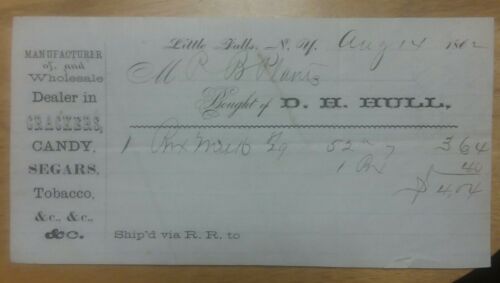 MANUFACTURER
of, and
Wholesale
Dealer in
CRACKERS,
CANDY,
SEGARS,
Tobacco,
&c., &c.,
&c.
Little Falls, N. Y. Aug 14 1862
M P. B
Bought of D. H. HULL,
1 Box 52 " 7 3 64
1 Box 40
$ 4,04
Ship'd via R. R. to